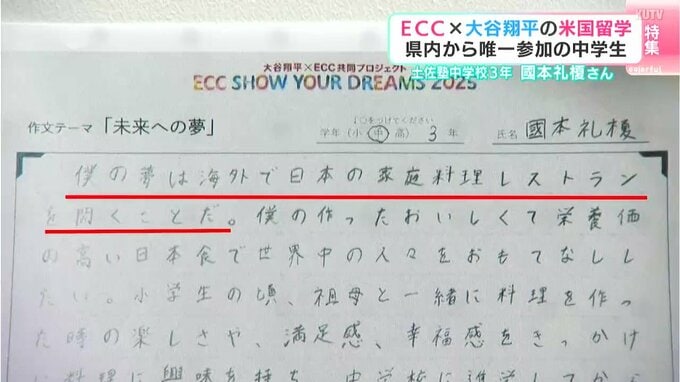 KUTV
ECC×大谷翔平の米国留学
県内から唯一参加の中学生
特集
土佐塾中学校3年 國本礼榎さん
大谷翔平×ECC共同プロジェクト
ECC SHOW YOUR DREAMS 2025
作文テーマ 「未来への夢」
○をつけてください
学年(小 中 高) 3 年
氏名 國本礼榎
僕の夢は海外で日本の家庭料理レストラン
を開くことだ。僕の作ったおいしくて栄養価
の高い日本食で世界中の人々をおもてなしし
たい。小学生の頃、祖母と一緒に料理を作っ
た時の楽しさや、満足感、幸福感をきっかけ
に料理に興味を持ち、中学校に進学してから